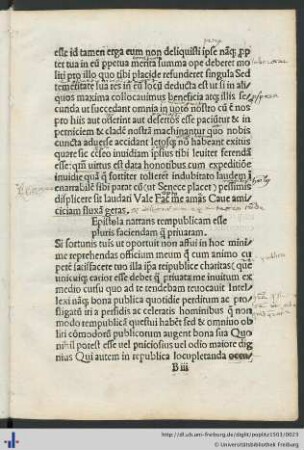 esse id tamen erga eum non deliquisti ipse nāq; ꝓp
ter tua in eū ꝑpetua merita summa ope deberet mo
liri pro illo quo tibi placide refunderet singula Sed
temeritate sua res in eū locū deducta est ut si in ali
quos maxima collocauimus beneficia atq; illis se
cunda ut succedant omnia in uotis nostro cū ē nos
pro hiis aut offerint aut desertos esse paciūtur & in
perniciem & cladē nostrā machinantur quo nobis
cuncta aduerse accidant letosq; nō habeant exitus
quare sic cēseo inuidiam ipsius tibi leuiter ferendā
esse; quū uirtus est data honoribus cum expeditiōe
inuidie quā q̄ fortiter tollerēt indubitato laudem
enarrabilē sibi parat cū (ut Senece placet) pessimis
displicere sit laudari Vale Fac me amās Caue ami
ciciam fluxā geras.
Epistola narrans rempublicam esse
pluris faciendam q̄ priuatam.
Si fortunis tuis ut oportuit non affui in hoc mini
me reprehendas officium meum q̄ cum animo cu
perē satisfacere tuo illa ipsa reipublice charitas; que
unicuiq; carior esse debet q̄ priuata me inuitum ex
medio cursu quo ad te tendebam reuocauit Intel
lexi nāq; bona publica quotidie perditum ac pro
fligatū iri a persidis ac celeratis hominibus q̄ non
modo rempublicā questui habēt sed & omniuo ali
ori cōmodorū publicorum augent bona sua Quo
nihil potest esse uel pniciosius uel odio maiore dig
nius Qui autem in republica locupletanda
B iii
http://dl.ub.uni-freiburg.de/diglit/poplitz1503/0023
© Universitätsbibliothek Freiburg